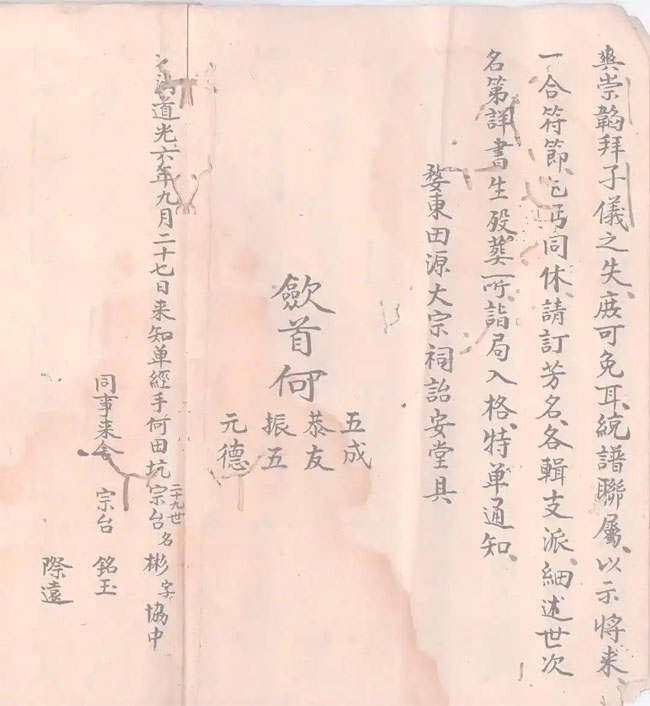 與崇韜拜子儀之失庶可免耳、統譜聯屬、以示將来、
一合符節、乞丐同休、請訂芳名、各輯支派、細述世次
名第、詳書生殁葬所、詣局入格、特单通知、
婺東田源大宗祠詒安堂具
歛首何
五成
恭友
振五
元德
道光六年九月二十七日来知单經手何田坑宗台二十九世名彬字協中
同事来舍 宗台 銘玉
際遠